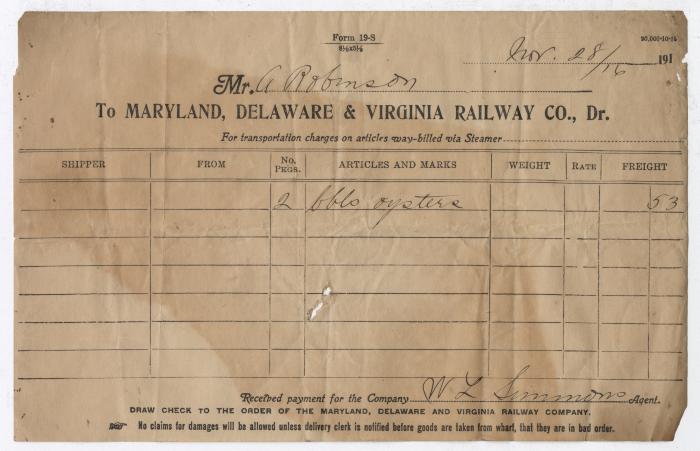 Form 19-S
8½x5½
20,000-10-14
Nov. 28/16 191
Mr. A Robinson
To MARYLAND, DELAWARE & VIRGINIA RAILWAY CO., Dr.
For transportation charges on articles way-billed via Steamer
SHIPPER FROM No. PKGS. ARTICLES AND MARKS WEIGHT RATE FREIGHT
2 bbls oysters 53
Received payment for the Company W L Simmons Agent.
DRAW CHECK TO THE ORDER OF THE MARYLAND, DELAWARE AND VIRGINIA RAILWAY COMPANY.
No claims for damages will be allowed unless delivery clerk is notified before goods are taken from wharf, that they are in bad order.